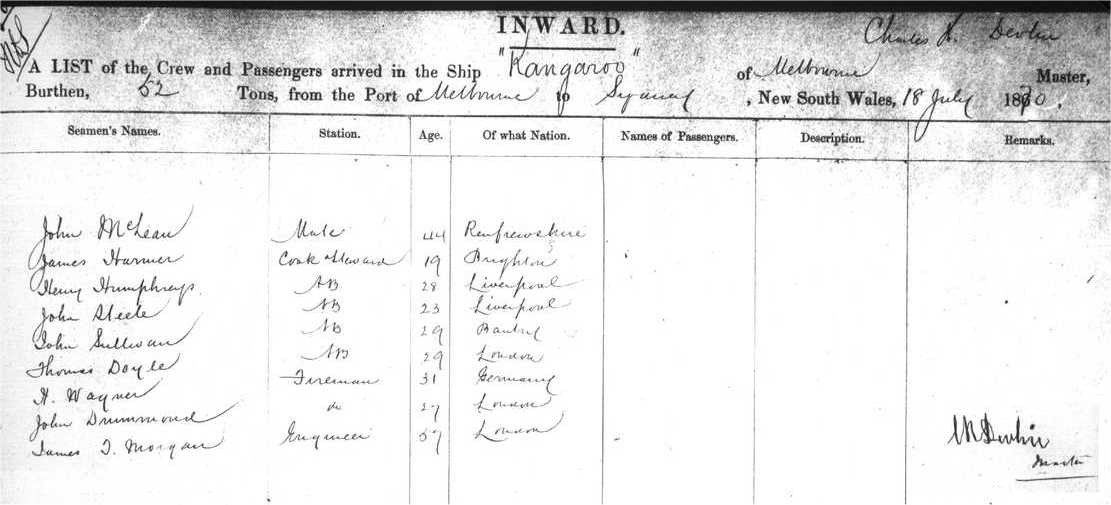 INWARD.
Charles R. Devlin
A LIST of the Crew and Passengers arrived in the Ship "Kangaroo" of Melbourne Master,
Burthen, 52 Tons, from the Port of Melbourne to Sydney, New South Wales, 18 July 1880.
Seamen's Names. Station. Age. Of what Nation. Names of Passengers. Description. Remarks.
John McLean Mate 44 Renfrewshire
James Harmer Cook & Steward 19 Brighton
Henry Humphreys AB 28 Liverpool
John Steele AB 23 Liverpool
John Sullivan AB 29 Bantry
Thomas Doyle AB 29 London
H. Wagner Fireman 31 Germany
John Drummond do 27 London
James T. Morgan Engineer 57 London
CR Devlin
Master